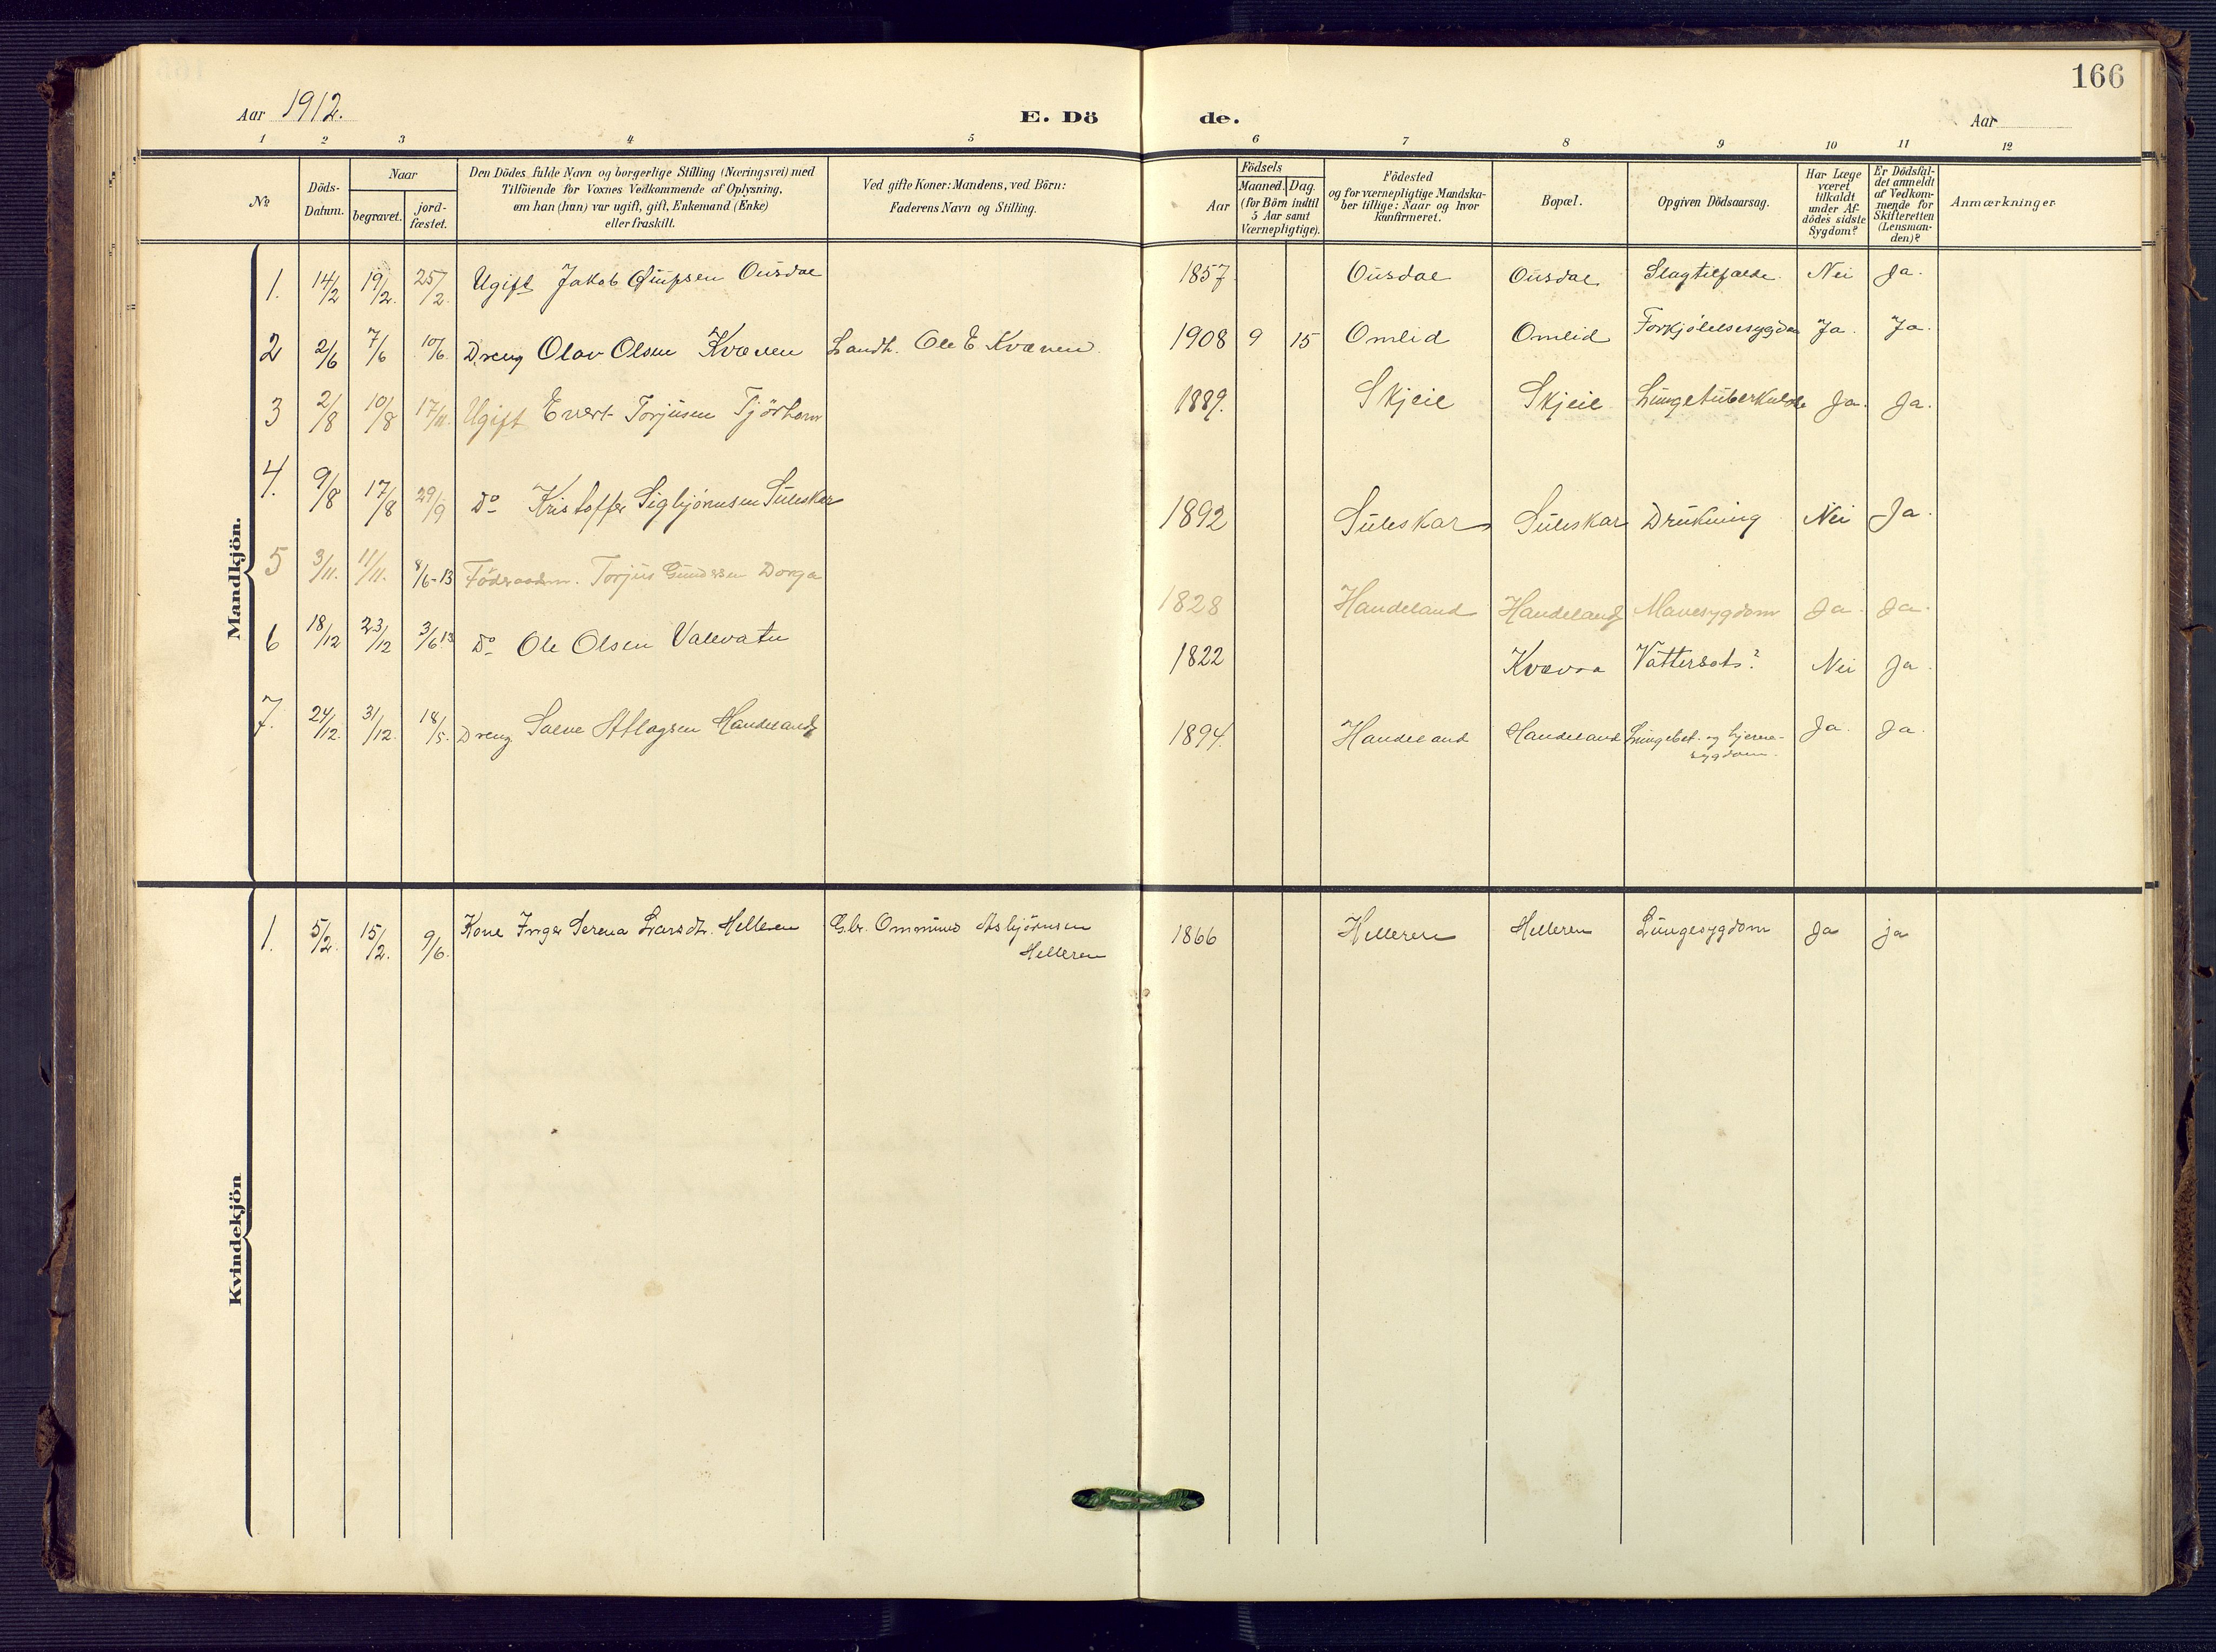 166
Aar 1912.
E. Dö de.
Aar
1 2 3 4 5 6 7 8 9 10 11 12
№
Döds-
Datum.
Naar
begravet.
jord-
fæstet.
Den Dödes fulde Navn og borgerlige Stilling (Næringsvei) med
Tilföiende for Voxnes Vedkommende af Oplysning,
om han (hun) var ugift, gift, Enkemand (Enke)
eller fraskilt.
Ved gifte Koner: Mandens, ved Börn:
Faderens Navn og Stilling.
Födsels
Aar
Maaned.
Dag.
(for Börn indtil
5 Aar samt
Værnepligtige).
Födested
og for værnepligtige Mandska-
ber tillige: Naar og hvor
kunfirmeret.
Bopæl.
Opgiven Dödsaarsag.
Har Læge
været
tilkaldt
under Af-
dödes sidste
Sygdom?
Er Dödsfal-
det anmeldt
af Vedkom-
mende for
Skifteretten
(Lensman-
den)?
Anmærkninger
Mandkjön.
1. 14/2 19/2. 25/2. Ugift Jakob Ousdal 1857. Ousdal Ousdal Slagtilfælde. Nei Ja.
2 2/6 7/6 10/6. Dreng Olav Olsen Kvæven Landh. Ole E Kvæven. 1908 9 15 Omlid Omlid Forkjölelsesygdom Ja. Ja.
3 2/8 10/8 17/11. Ugift Evert Torjusen Tjörhom 1889. Skjeie Skjeie Lungetuberkulose Ja. Ja.
4. 9/8 17/8 29/9 Do Kristoffer Sigbjörnsen Suleskar 1892 Suleskar Suleskar Drukning Nei Ja.
5 3/11. 11/11. 8/6-13 Föderaadm. Torjus Gundersen Dorga 1828 Handeland Handeland Mavesygdom Ja. Ja.
6 18/12 23/12 3/6 13 Do Ole Olsen Valevatn 1822 Kvæven Vattersots? Nei Ja.
7. 24/12. 31/12. 18/5. Dreng Salve Atlagsen Handeland 1894. Handeland Handeland Lungebet. og hjerne-
sygdom. Ja. Ja.
Kvindekjön
1. 5/2. 15/2. 9/6. Kone Inger Serena Larsdt. Helleren Gbr. Ommund Asbjörnsen
Helleren 1866 Helleren Helleren Lungesygdom Ja ja